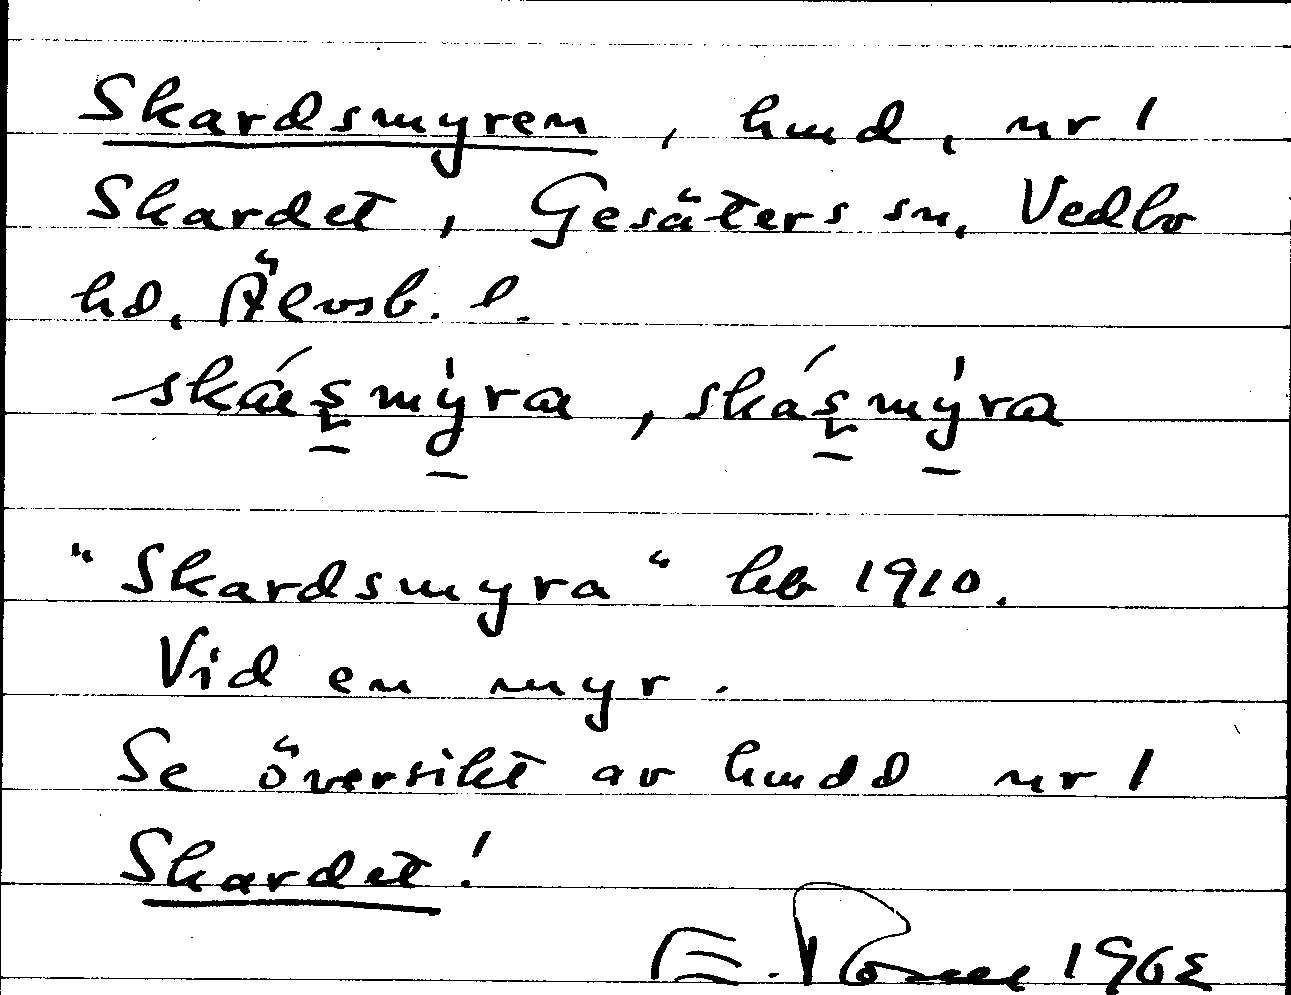 Skardsmyren, hmd, nr 1
Skardet, Gesäters sn, Vedbo
hd, Älvsb. l.
skáʂmy̍ra, skáʂmy̍ra
"Skardsmyra" hb 1910.
Vid en myr.
Se översikt av hmdd nr 1
Skardet!
E. 1962